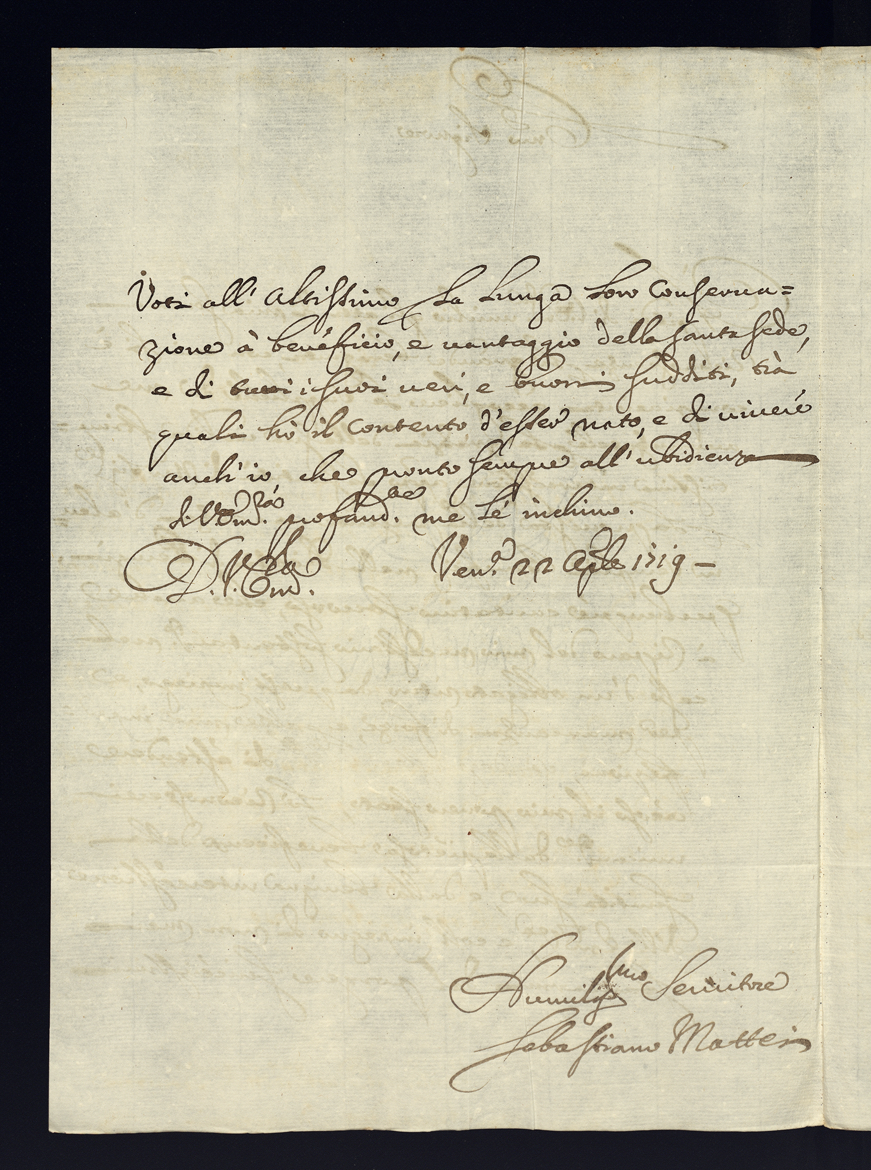 Voti all' Altissimo la lunga loro conserua=
zione à beneficio, e uantaggio della santa sede,
e di tutti i suoi ueri, e buoni sudditi, trà
quali hò il contento d'esser nato, e di uiuere
anch'io, che pronto sempre all'ubidienza
profond.te me le inchino.
D. V. Em.za Ven.a 22 Aple 1719 -
Humiliss.mo Seruitore
Sebastiano Mattei